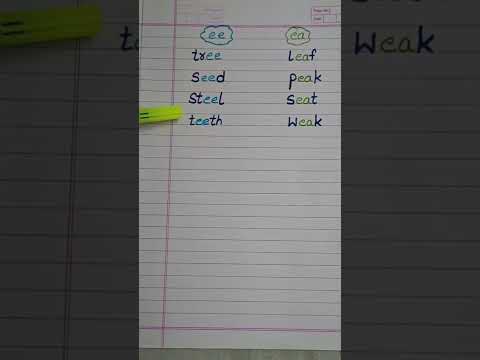 ee ea
tree leaf
seed peak
Steel seat
teeth weak